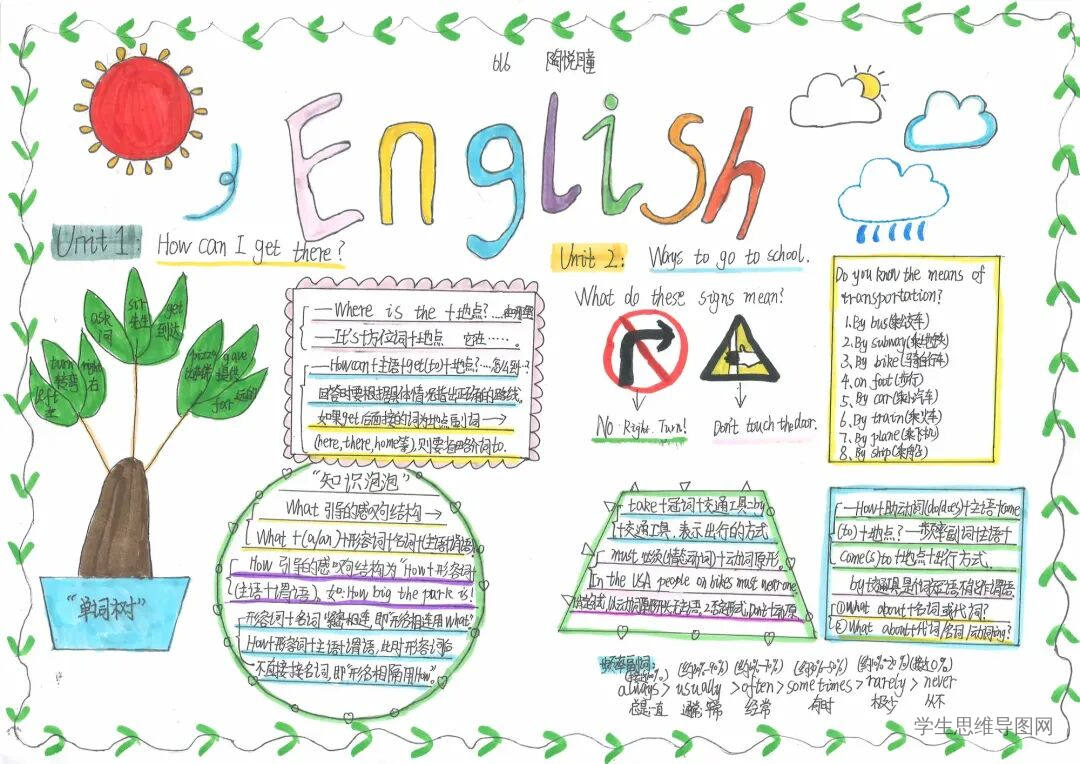 616 陶悦瞳
English
Unit 1:
How can I get there?
left
左
turn
转弯
right
右
ask
问
sir
先生
get
到达
pizza
比萨饼
gave
提供
far
远的
"单词树"
—Where is the +地点?……在哪里
—It's+方位词+地点 它在……。
—How can+主语+get(to)+地点?…怎么到…?
回答时要根据具体情况指出正确的路线。
如果get后面接的词为地点副词→
(here,there,home等),则要省略介词to.
"知识泡泡"
What 引导的感叹句结构→
What +(a/an)+形容词+名词+(主语+谓语)
How 引导的感叹句结构为"How+形容词
(主语+谓语)。如:How big the park is!
形容词+名词 紧密相连,即"形名相连用What"
How+形容词+主语+谓语,此时形容词后
不直接接名词,即"形名相隔用How"。
Unit 2:
Ways to go to school.
What do these signs mean?
No Right Turn!
Don't touch the door.
Do you know the means of
transportation?
1.By bus(乘公交车)
2.By subway(乘地铁)
3.By bike(骑自行车)
4.on foot(步行)
5.By car(乘小汽车)
6.By train(乘火车)
7.By plane(乘飞机)
8.By ship(乘船)
take+冠词+交通工具=by
+交通工具,表示出行的方式
must 必须(情态动词)+动词原形.
In the USA people on bikes must wear one
—How+助动词(do/does)+主语+come
(to)+地点?—频率副词+主语+
come(s) to +地点+出行方式.
by+交通工具是介词短语,不能作谓语.
①What about+名词或代词?
②What about+代词/名词/动词ing?
频率副词:
(100%) (约80%-90%) (约60%-70%) (约30%-50%) (约10%-20%) (0%)
always> usually >often> sometimes> rarely> never
总是一直 通常 经常 有时 极少 从不
学生思维导图网